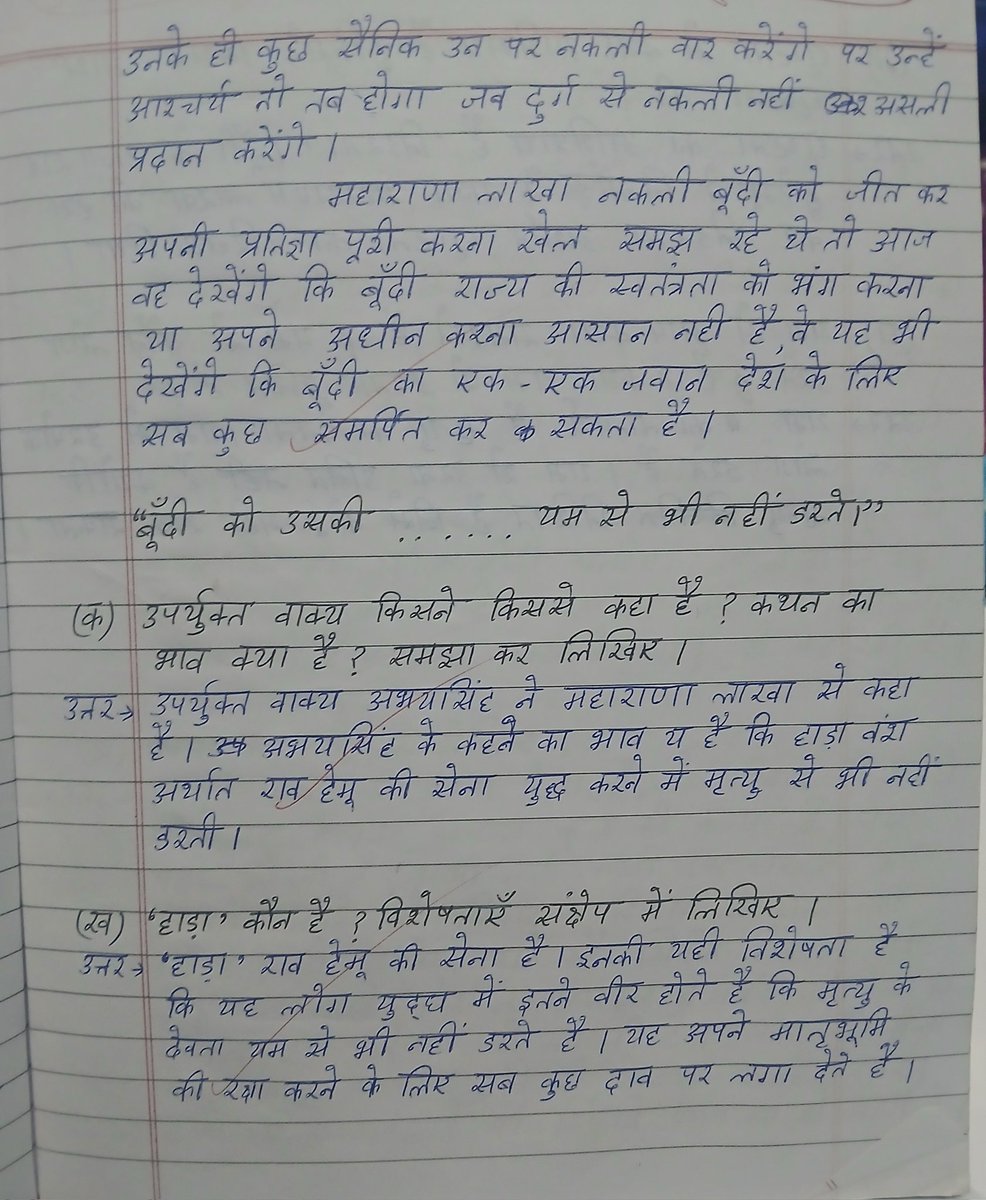 उनके ही कुछ सैनिक उन पर नकली वार करेंगे पर उन्हें
आश्चर्य तो तब होगा जब दुर्ग से नकली नहीं असली
प्रदान करेंगे ।
महाराणा लाखा नकली बूँदी को जीत कर
अपनी प्रतिज्ञा पूरी करना खेल समझ रहे थे तो आज
वह देखेंगे कि बूँदी राज्य की स्वतंत्रता को भंग करना
या अपने अधीन करना आसान नही है, वे यह भी
देखेंगे कि बूँदी का एक - एक जवान देश के लिए
सब कुछ समर्पित कर सकता है ।
“बूँदी को उसकी ....... यम से भी नहीं डरते।”
(क) उपर्युक्त वाक्य किसने किससे कहा है ? कथन का
भाव क्या है ? समझा कर लिखिए ।
उत्तर→ उपर्युक्त वाक्य अभयसिंह ने महाराणा लाखा से कहा
है । अभयसिंह के कहने का भाव य है कि हाड़ा वंश
अर्थात राव हेमू की सेना युद्ध करने में मृत्यु से भी नहीं
डरती ।
(ख) ‘हाड़ा’ कौन है ? विशेषताएँ संक्षेप में लिखिए ।
उत्तर→ ‘हाड़ा’ राव हेमू की सेना है । इनकी यही विशेषता है
कि यह लोग युद्ध में इतने वीर होते है कि मृत्यु के
देवता यम से भी नहीं डरते है । यह अपने मातृभूमि
की रक्षा करने के लिए सब कुछ दाव पर लगा देते है ।